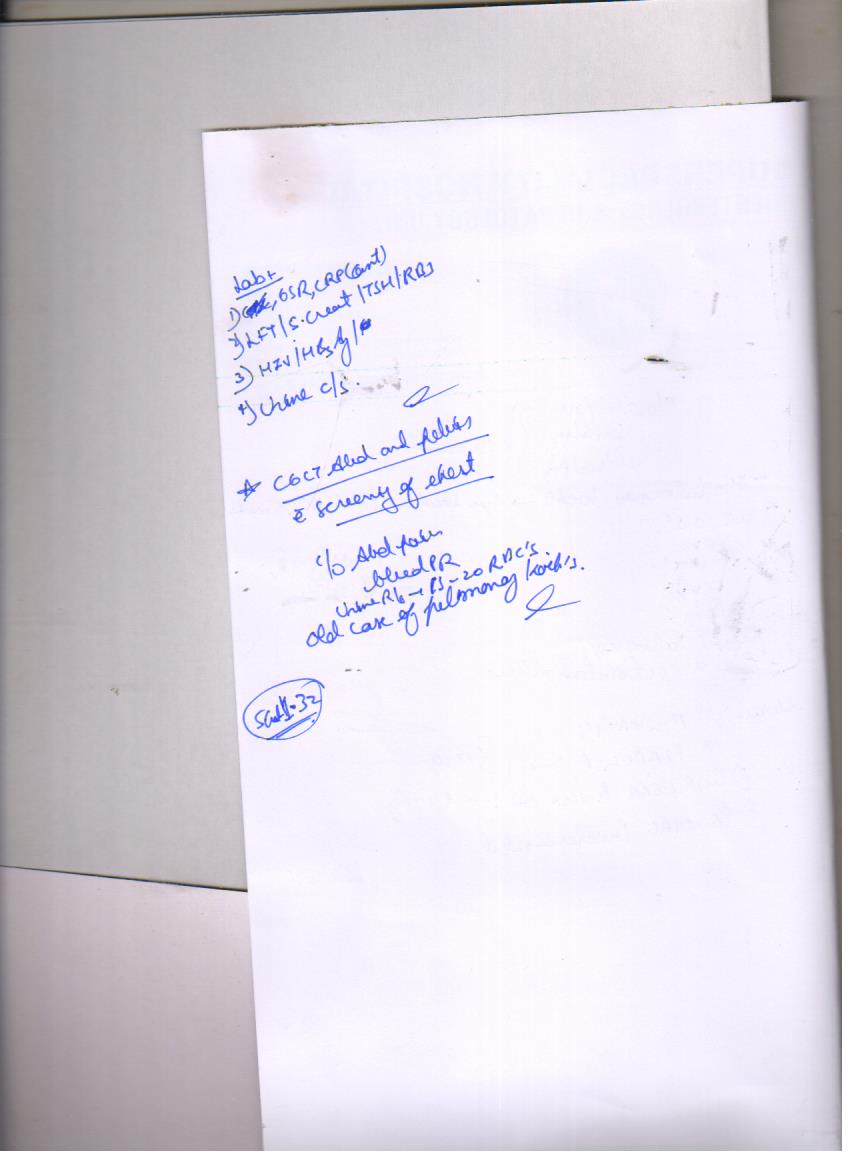 Labs
1) ESR, CRP (Quant)
2) LFT / S. Creat / TSH / RBS
3) HIV / HBsAg /
4) Urine C/S.
* CECT Abd and Pelvis
c̄ Screening of chest
C/O Abd pain
bleed PR
Urine R/M → PS - 20 RBC's.
Old case of pulmonary Koch's.